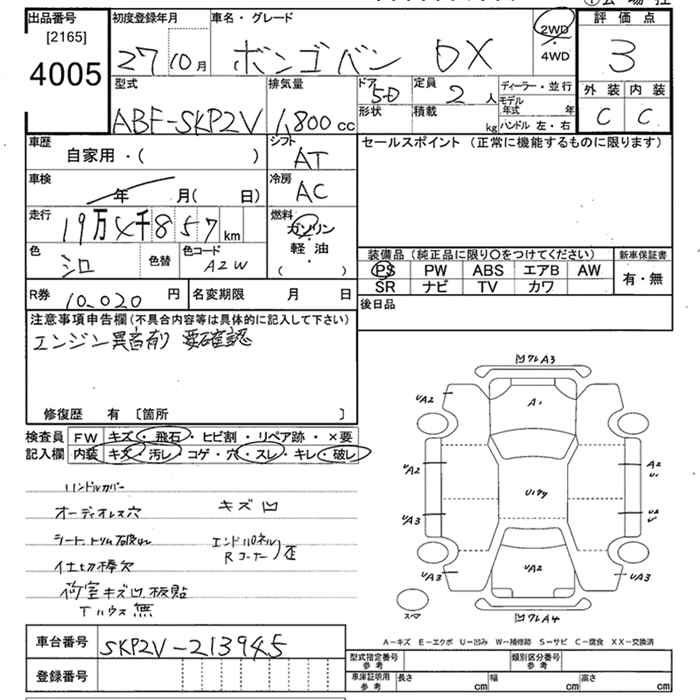 出品番号
[2165]
4005
初度登録年月
27 10月
車名・グレード
ボンゴバン DX
2WD
4WD
評価点
3
型式
ABF-SKP2V
排気量
1,800 cc
ドア
5D
形状
定員
2 人
積載
kg
ディーラー・並行
モデル年式 年
ハンドル 左・右
外装 内装
C C
車歴
自家用・( )
シフト
AT
セールスポイント (正常に機能するものに限ります)
車検
年 月( 日)
冷房
AC
走行
19万4千857km
燃料
ガソリン
軽・油
( )
色
シロ
色替
色コード
A2W
装備品(純正品に限り○をつけてください)
新車保証書
PS PW ABS エアB AW
SR ナビ TV カワ
有・無
R券
10,020 円
名変期限 月 日
後日品
注意事項申告欄(不具合内容等は具体的に記入して下さい)
エンジン異音有り 要確認
修復歴 有 〔箇所 〕
検査員
記入欄
FW キズ・飛石・ヒビ割・リペア跡・×要
内装 キズ・汚レ・コゲ・穴・スレ・キレ・破レ
ハンドルカバー
オーディオレス穴
キズ凹
エンドパネル
Rコーナー 歪
仕切棒欠
荷室キズ凹 板貼
Tハウス無
A3
UA2
A1
UA2
A2
U1
UA3
UA2
UA3
UA3
スペア
A4
A-キズ E-エクボ U-凹み W-補修跡 S-サビ C-腐食 XX-交換済
車台番号
SKP2V-213945
登録番号
型式指定番号
参考
類別区分番号
参考
車庫証明用
参考
長さ cm
幅 cm
高さ cm